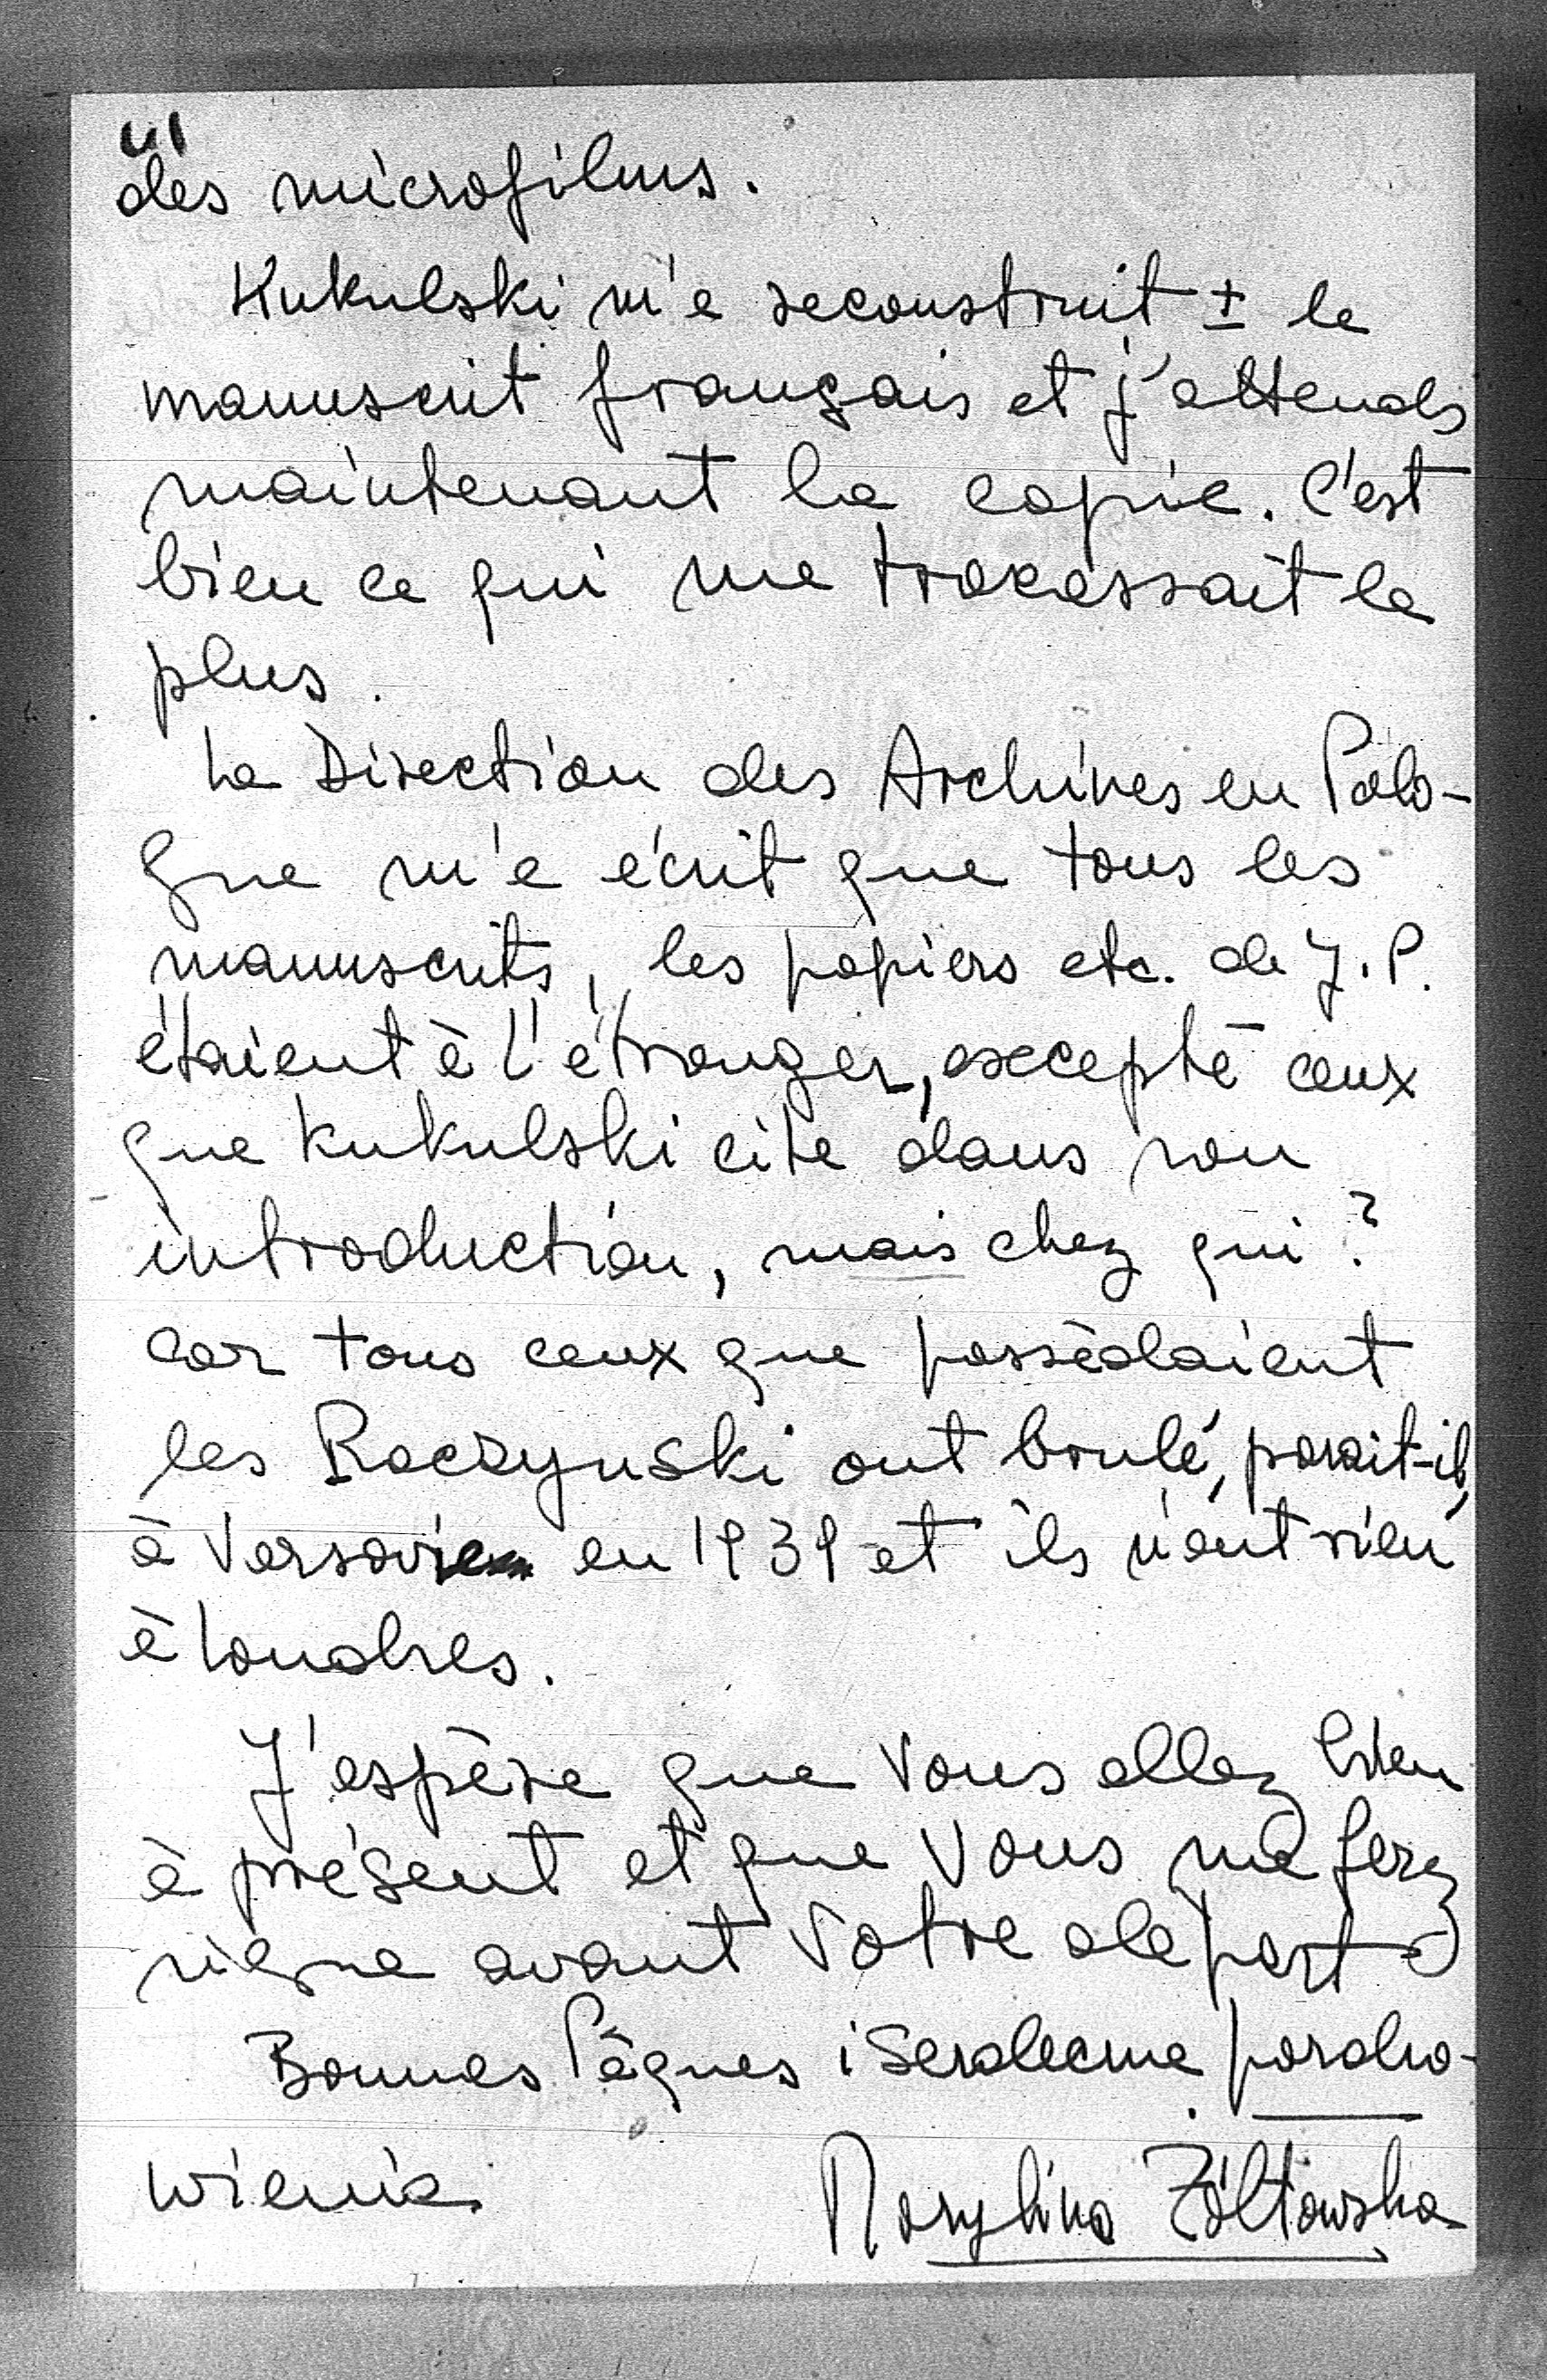 III
des microfilms.
Kukulski m'a reconstruit ± le
manuscrit français et j'attends
maintenant la copie. C'est
bien ce qui me tracassait le
plus.
La Direction des Archives en Polo-
gne m'a écrit que tous les
manuscrits, les papiers etc. de J. P.
étaient à l'étranger, excepté ceux
que Kukulski cite dans son
introduction, mais chez qui?
car tous ceux que possèdaient
les Raczynski ont brulé, parait-il,
à Varsovie en 1939 et ils n'ont rien
à Londres.
J'espère que Vous allez bien
à présent et que Vous me ferez
signe avant Votre départ
Bonnes Pâques i Serdeczne pozdro-
wienia.
Marylina Żółtowska